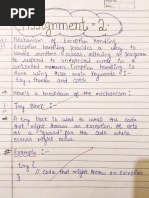 Assignment - 2
Mechanism of Exception Handling
Exception handling provides a way to
handle runtime errors, allowing a program
to respond to unexpected events in a
controlled manner. Exception handling is
done using five main keywords :-
try, throw and catch
Here's a breakdown of the mechanism :
Try block :-
A try block is used to wrap the code
that might throw an exception. It acts
as a "guard" for the code where
errors might occur.
Example :
try {
// Code that might throw an exception